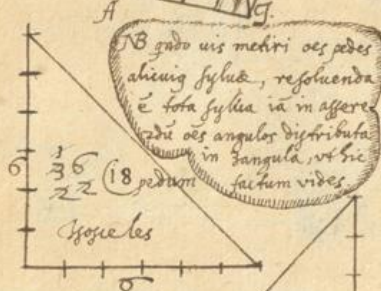 A G.
NB qndo vis metiri oes pedes
alicuig sylvæ, resolvenda
ē tota sylva iā in assere
scdū oēs angulos distributa
in 3angula, vt hic
factum vides.
6
3
36
22
18 pedum
Isosceles
6